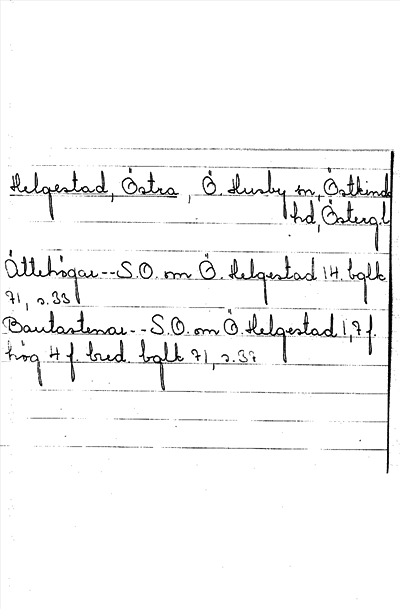 Helgestad, Östra, Ö. Husby sn, Östkinds
hd, Östergl
Ättehögar -- S.O. om Ö. Helgestad 14. bglk
71, s. 33
Bautastenar -- S.O. om Ö. Helgestad 1, 7 f.
hög 4 f. bred. bglk 71, s. 37